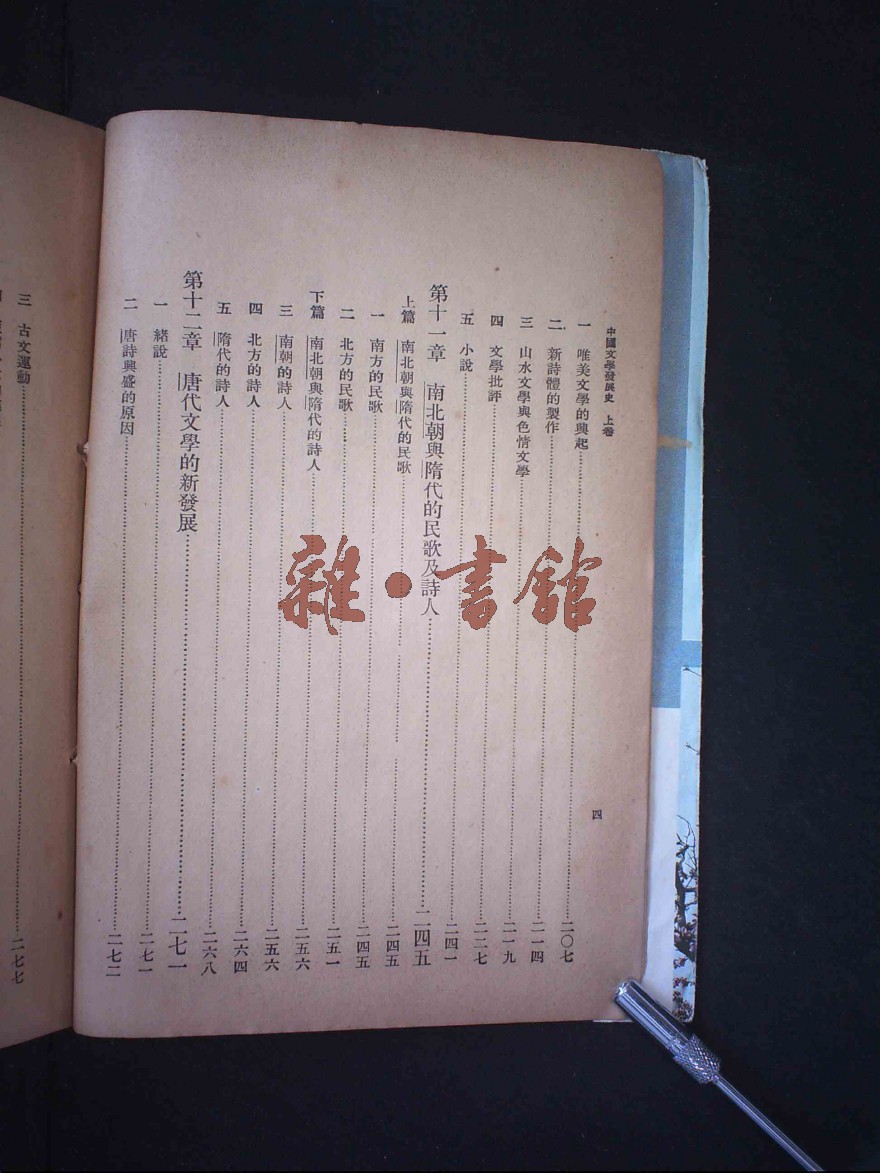 中國文學發展史 上卷
四
一 唯美文學的興起……二〇七
二 新詩體的製作……二一四
三 山水文學與色情文學……二一九
四 文學批評……二二七
五 小說……二四一
第十一章 南北朝與隋代的民歌及詩人……二四五
上篇 南北朝與隋代的民歌……二四五
一 南方的民歌……二四五
二 北方的民歌……二五一
下篇 南北朝與隋代的詩人……二五六
三 南朝的詩人……二五六
四 北方的詩人……二六四
五 隋代的詩人……二六八
第十二章 唐代文學的新發展……二七一
一 緒說……二七一
二 唐詩興盛的原因……二七二
三 古文運動……二七七
雜·書館